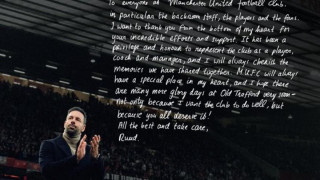 To everyone at Manchester United football Club.
in particular the backroom staff, the players and the fans.
I want to thank you from the bottom of my heart for
your incredible efforts and support. It has been a
privilege and honour to represent the club as a player,
coach and manager, and I will always cherish the
memories we have shared together. M.U.F.C will always
have a special place in my heart, and I hope there
are many more glory days at Old Trafford very soon -
not only because I want the club to do well, but
because you all deserve it!
All the best and take care,
Ruud.